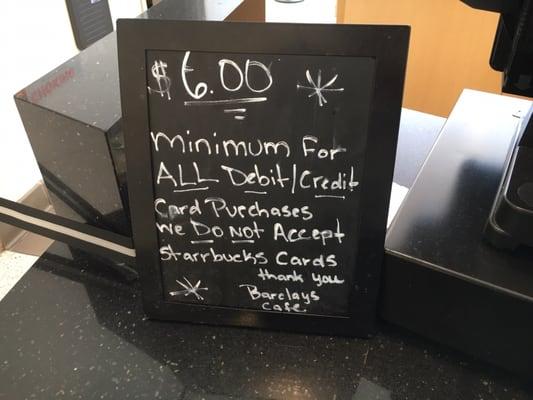 $6.00
minimum For
ALL Debit/Credit
Card Purchases
We Do Not Accept
Starrbucks Cards
thank you
Barclays
Cafe